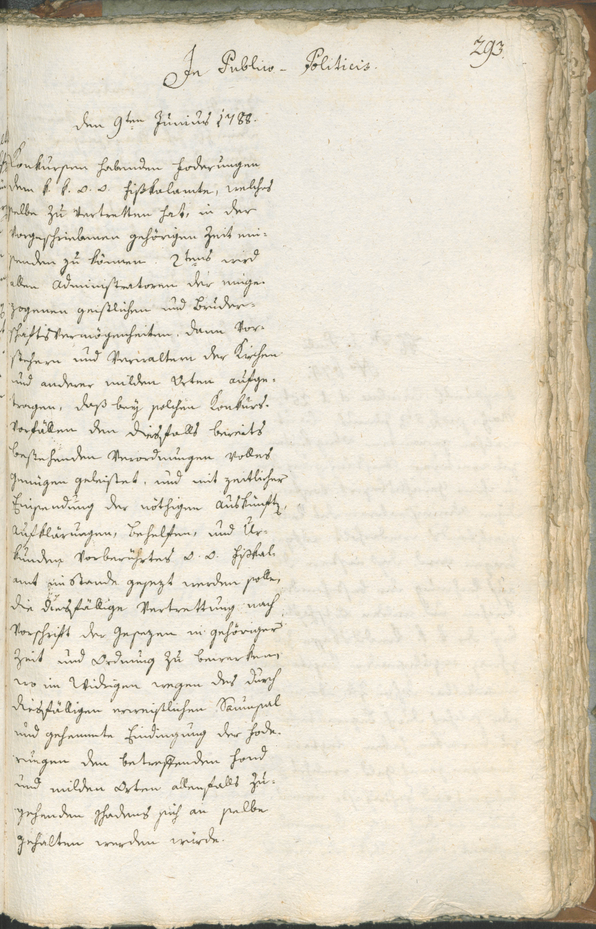 293.
In Publico-Politicis.
den 9ten Junius 1788.
Konkursen habenden Foderungen
dem k. k. v. ö. Fißkalamte, welches
selbe zu vertretten hat, in der
vorgeschriebenen gehörigen Zeit ein-
senden zu können. 2tens wird
allen Administratoren der einge-
zogenen geistlichen und Bruder-
schaftsvermögenheiten, dann Vor-
stehern und Verwaltern der Kirchen
und anderer milden Orten aufge-
tragen, daß bey solchen Konkurs-
vorfällen den diesfalls bereits
bestehenden Verordnungen volles
Genügen geleistet, und mit zeitlicher
Einsendung der nöthigen Auskünfte,
Aufklärungen, Behelfen, und Ur-
kunden vorberührtes v. ö. Fißkal-
amt im Stande gesezt werden solle,
die diesfällige Vertrettung nach
Vorschrift der Gesezen in gehöriger
Zeit und Ordnung zu bewerken,
wo im Widrigen wegen des durch
diesfälligen erweislichen Saumsal
und gehemmte Eindingung der Fode-
rungen den betreffenden Fond
und milden Orten allenfalls zu-
gehenden Schadens sich an selbe
gehalten werden würde.